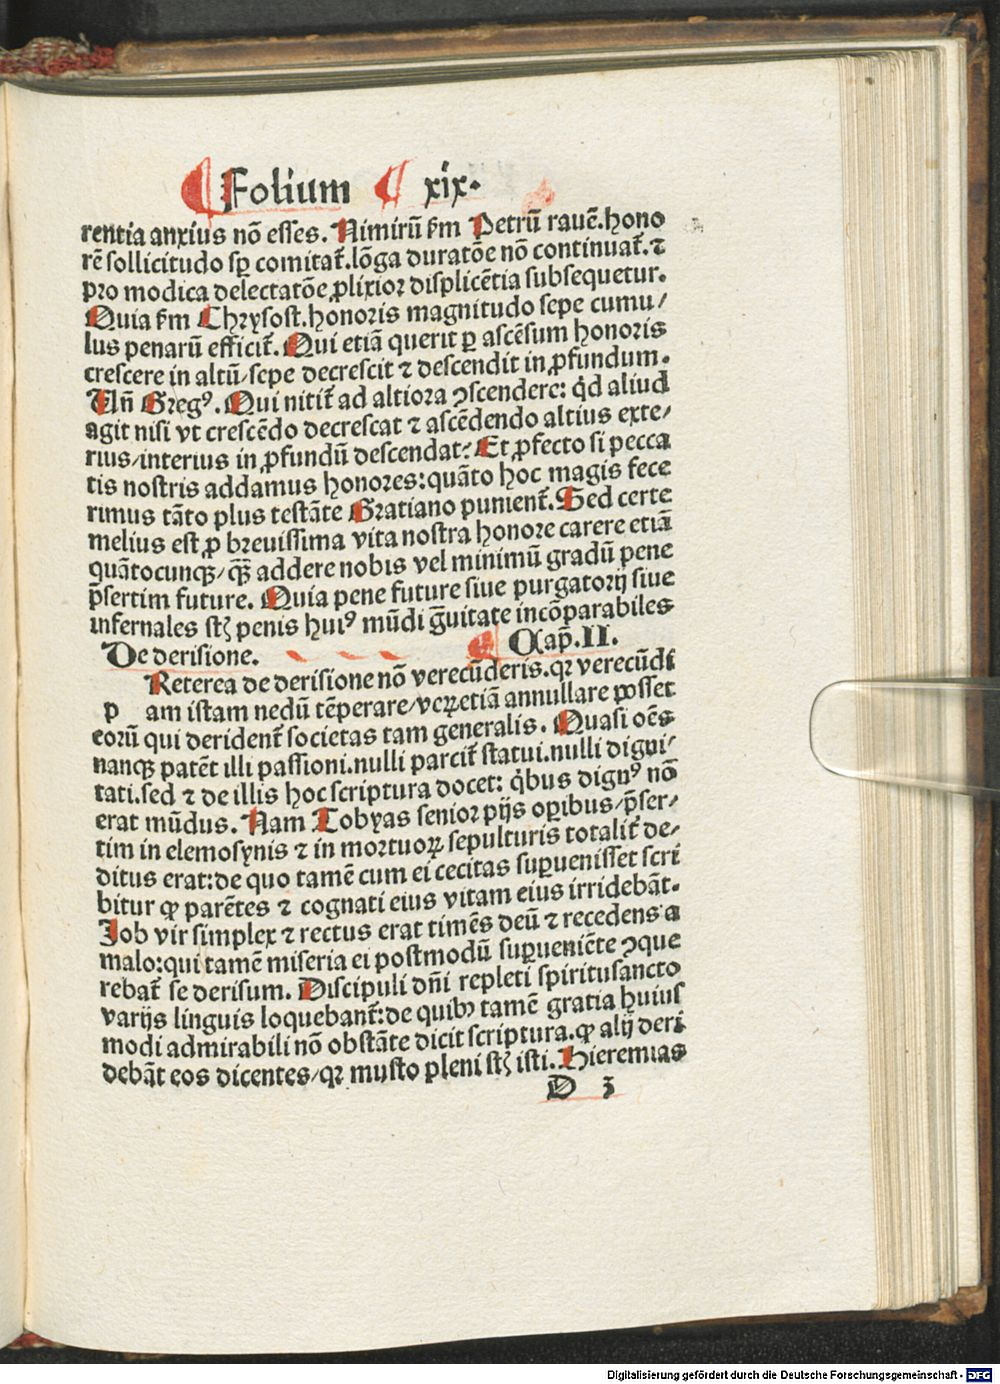 Folium xix.
rentia anxius nō esses. Nimirū ẜm Petrū rauē. hono
rē sollicitudo sꝑ comitaṫ. lōga duratōe nō continuaṫ. ⁊
pro modica delectatōe ꝓlixior displicētia subsequetur.
Quia ẜm Chrysost. honoris magnitudo sepe cumu/
lus penarū efficiṫ. Qui etiā querit ꝑ ascēsum honoris
crescere in altū/ sepe decrescit ⁊ descendit in ꝓfundum.
Vn̄ Gregꝰ. Qui nitiṫ ad altiora ꝯscendere: qͥd aliud
agit nisi vt crescēdo decrescat ⁊ ascēdendo altius exte/
rius/ interius in ꝓfundū descendat? Et ꝓfecto si pecca
tis nostris addamus honores: quāto hoc magis fece
rimus tāto plus testāte Gratiano punienṫ. Sed certe
melius est ꝓ breuissima vita nostra honore carere etiā
quātocunqꝫ/ qͣꝫ addere nobis vel minimū gradū pene
p̄sertim future. Quia pene future siue purgatorij siue
infernales st̄ penis huiꝰ mūdi ḡuitate incōparabiles
De derisione. Cap̄. II.
Reterea de derisione nō verecūderis. qꝛ verecūdi
p am istam nedū tēperare/ veꝝ etiā annullare posset
eorū qui deridenṫ societas tam generalis. Quasi oēs
nanqꝫ patēt illi passioni. nulli parciṫ statui. nulli digni/
tati. sed ⁊ de illis hoc scriptura docet: qͥbus dignꝰ nō
erat mūdus. Nam Tobyas senior pijs oꝑibus/ p̄ser/
tim in elemosynis ⁊ in mortuoꝝ sepulturis totaliṫ de/
ditus erat: de quo tamē cum ei cecitas suꝑuenisset scri
bitur ꝙ parētes ⁊ cognati eius vitam eius irridebāt.
Job vir simplex ⁊ rectus erat timēs deū ⁊ recedens a
malo: qui tamē miseria ei postmodū suꝑueniēte ꝯque
rebaṫ se derisum. Discipuli dn̄i repleti spiritusancto
varijs linguis loquebanṫ: de quibꝰ tamē gratia huius
modi admirabili nō obstāte dicit scriptura. ꝙ alij deri
debāt eos dicentes/ qꝛ musto pleni st̄ isti. Hieremias
D 3
Digitalisierung gefördert durch die Deutsche Forschungsgemeinschaft - DFG